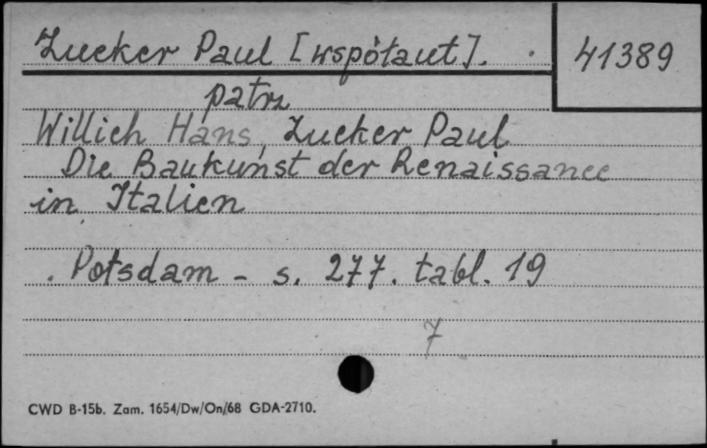 Zucker Paul [współaut]. 41389
patrz
Willich Hans, Zucker Paul
Die Baukunst der Renaissance
in Italien
Potsdam - s. 277. tabl. 19
7
CWD B-15b. Zam. 1654/Dw/On/68 GDA-2710.